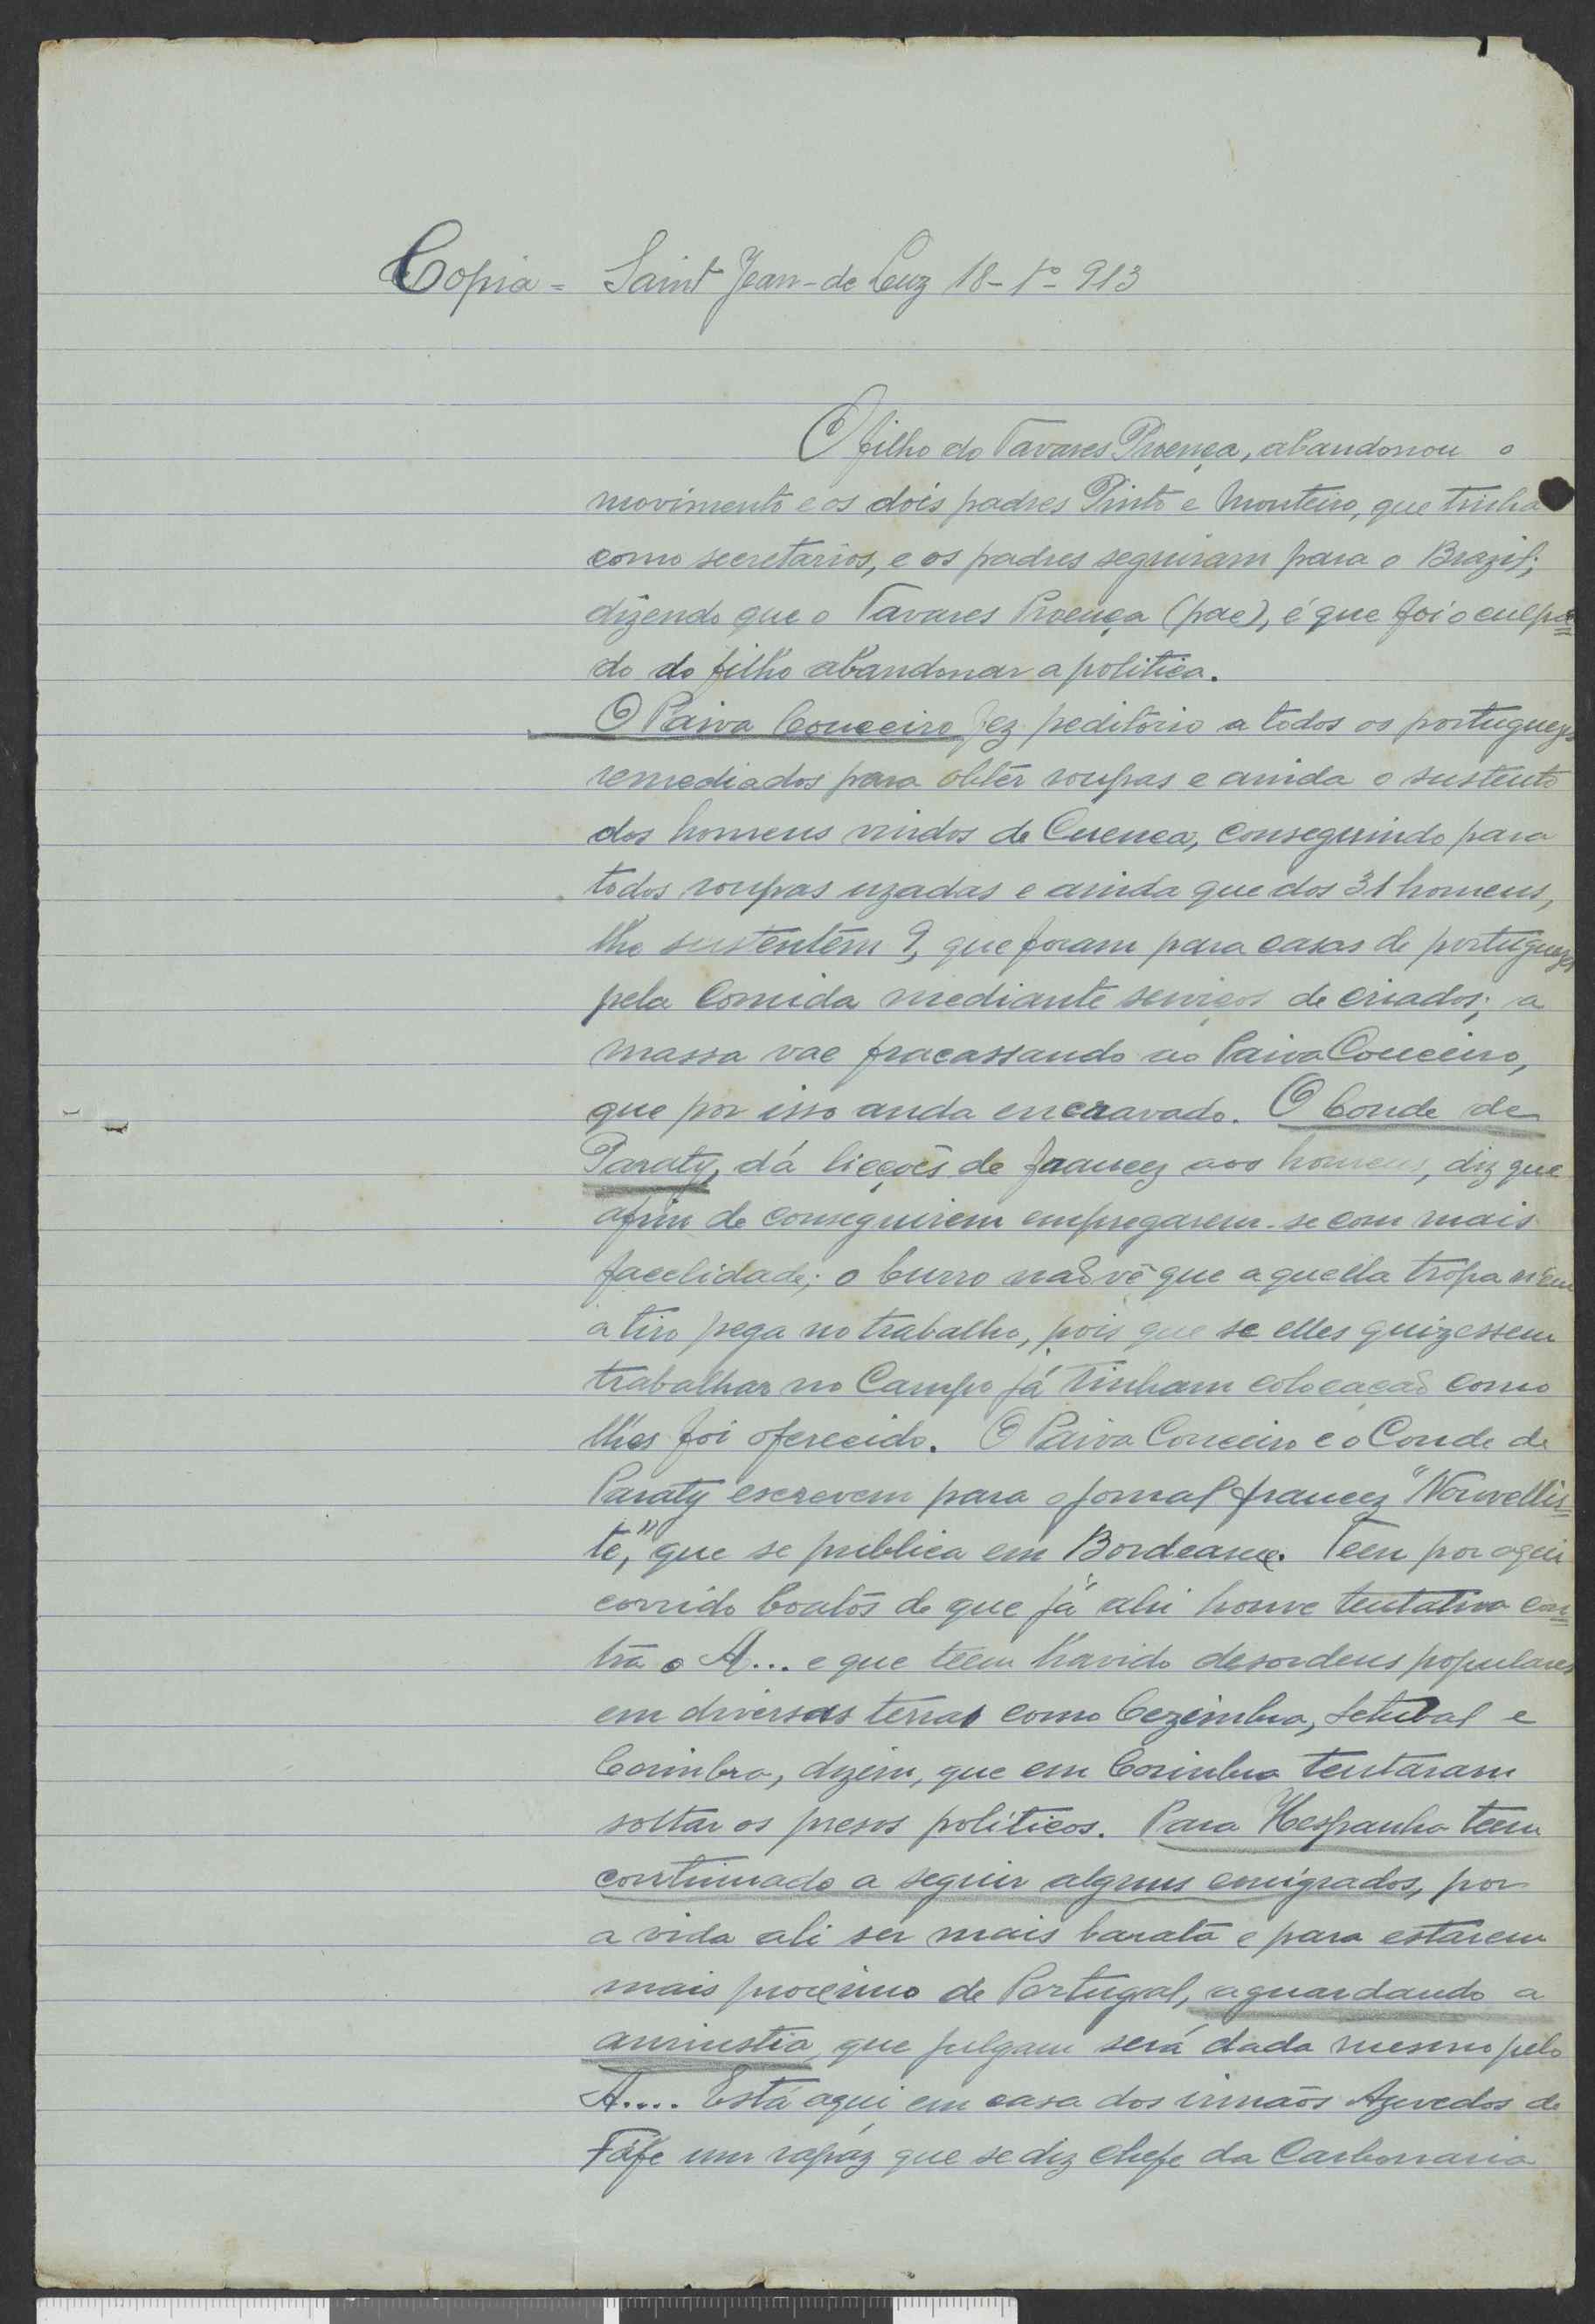 Copia = Saint Jean-de Luz 18-1º-913
O filho do Tavares Proença, abandonou o
movimento e os dois padres Pinto e Monteiro, que tinha
como secretarios, e os padres seguiram para o Brazil;
dizendo que o Tavares Proença (pae), é que foi o culpa=
do do filho abandonar a politica.
O Paiva Couceiro fez peditório a todos os portuguezes
remediados para obter roupas e ainda o sustento
dos homens vindos de Cuenca, conseguindo para
todos roupas uzadas e ainda que dos 31 homens,
lhe sustentem 9, que foram para casas de portuguezes
pela comida mediante serviços de criados; a
massa vae fracassando ao Paiva Couceiro,
que por isso anda encravado. O Conde de
Paraty, dá licções de francez aos homens, diz que
afim de conseguirem empregarem-se com mais
facelidade; o burro não vê que aquella tropa nem
a tiro pega no trabalho, pois que se elles quizessem
trabalhar no Campo já tinham colocação como
lhes foi oferecido. O Paiva Couceiro e o Conde de
Paraty escrevem para o jornal francez "Nouvellis=
te," que se publica em Bordeaux. Teem por aqui
corrido boatos de que já ahi houve tentativa con=
tra o A... e que teem havido desordens populares
em diversas terras como Cezimbra, Setubal e
Coimbra, dizem, que em Coimbra tentaram
soltar os presos políticos. Para Hespanha teem
continuado a seguir alguns emigrados, por
a vida ali ser mais barata e para estarem
mais proximo de Portugal, aguardando a
amnistia que julgam será dada mesmo pelo
A.... Está aqui em casa dos irmãos Azevedos de
Fáfe um rapaz que se diz chefe da Carbonaria